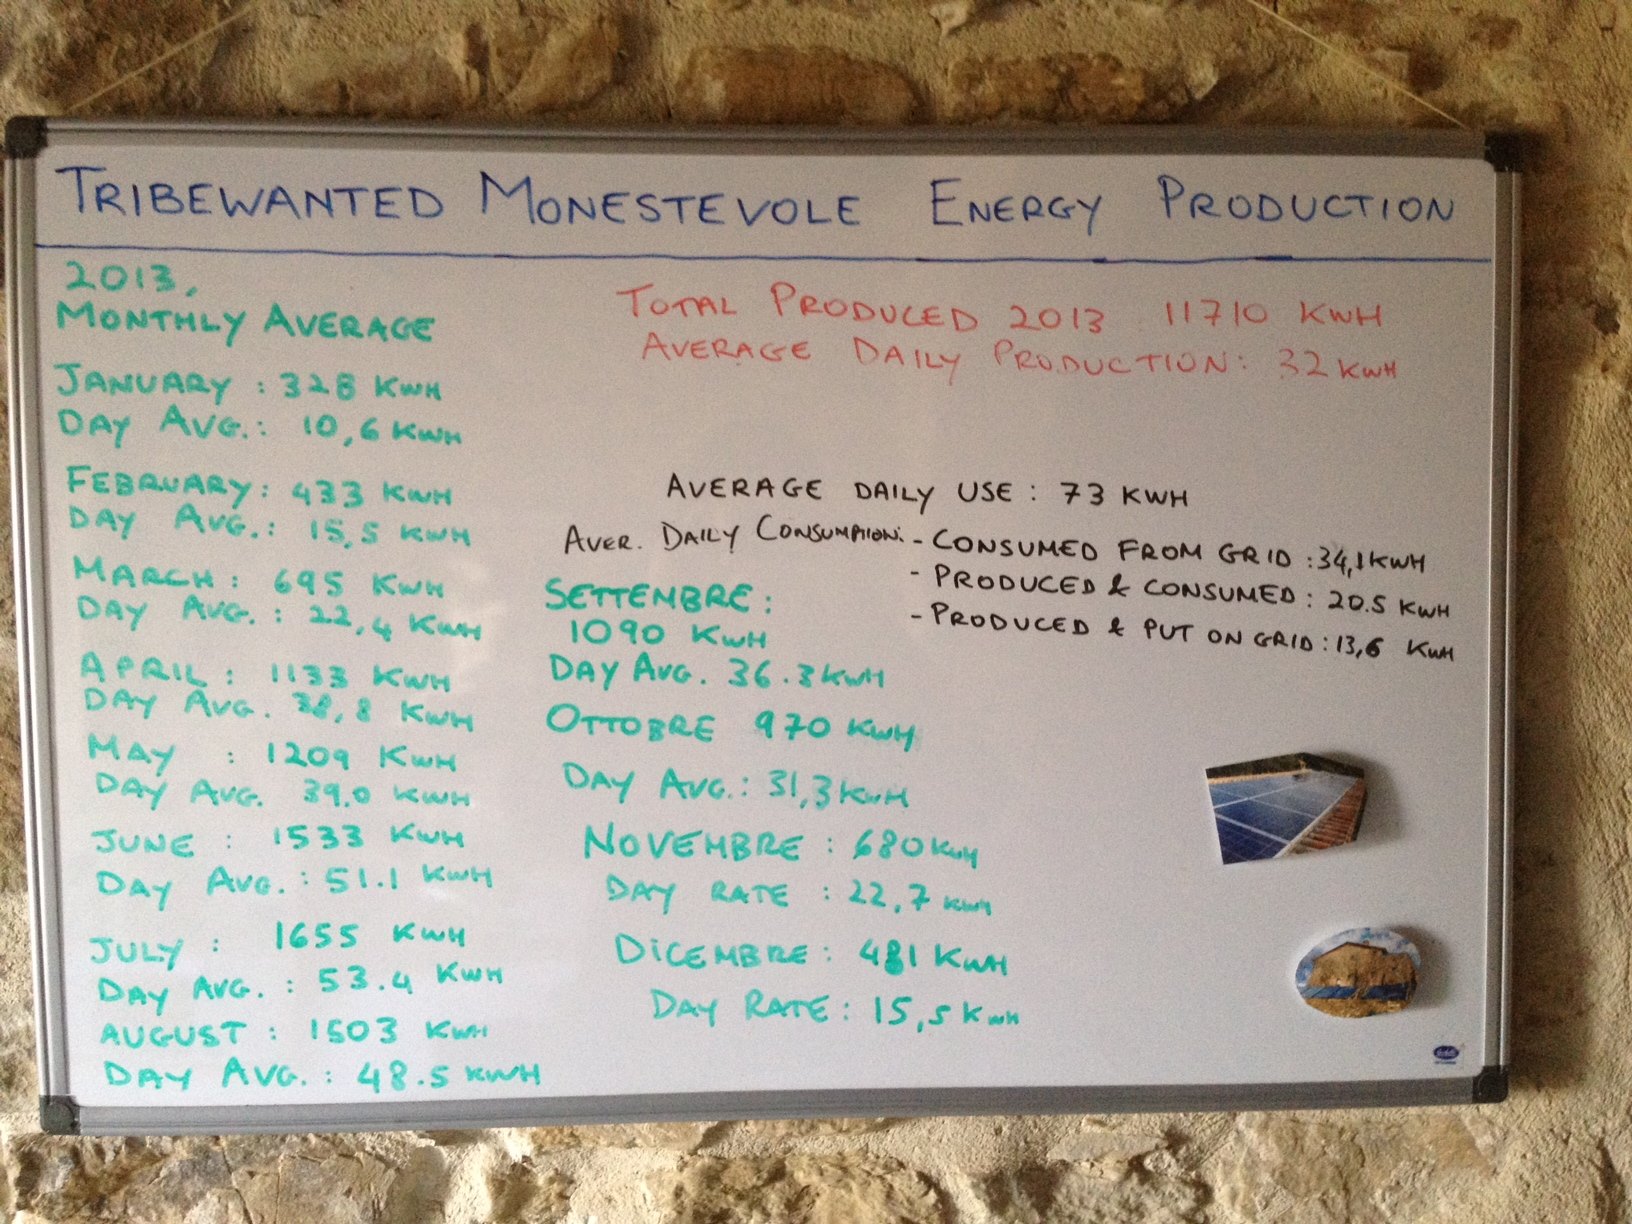 TRIBEWANTED MONESTEVOLE ENERGY PRODUCTION
2013,
MONTHLY AVERAGE
JANUARY : 328 KWH
DAY AVG.: 10,6 KWH
FEBRUARY: 433 KWH
DAY AVG.: 15,5 KWH
MARCH: 695 KWH
DAY AVG.: 22,4 KWH
APRIL: 1133 KWH
DAY AVG. 38,8 KWH
MAY : 1209 KWH
DAY AVG. 39.0 KWH
JUNE : 1533 KWH
DAY AVG.: 51.1 KWH
JULY : 1655 KWH
DAY AVG. : 53.4 KWH
AUGUST : 1503 KWH
DAY AVG. : 48.5 KWH
TOTAL PRODUCED 2013 11710 KWH
AVERAGE DAILY PRODUCTION: 32 KWH
AVERAGE DAILY USE : 73 KWH
AVER. DAILY CONSUMPTION: - CONSUMED FROM GRID : 34,1 KWH
- PRODUCED & CONSUMED : 20.5 KWH
- PRODUCED & PUT ON GRID : 13,6 KWH
SETTEMBRE :
1090 KWH
DAY AVG. 36.3 KWH
OTTOBRE 970 KWH
DAY AVG.: 31,3 KWH
NOVEMBRE : 680 KWH
DAY RATE : 22,7 KWH
DICEMBRE: 481 KWH
DAY RATE : 15,5 KWH